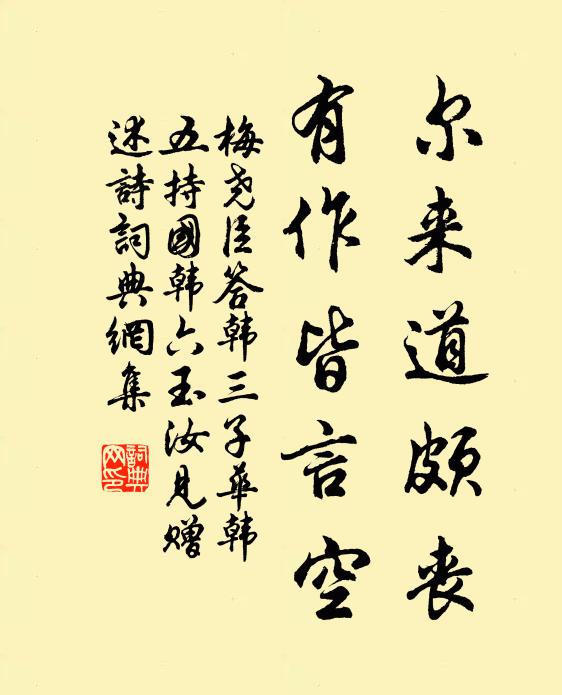 尔来道颇丧
有作皆言空
梅尧臣答韩三子华韩
五持國韩六玉汝見赠
述詩詞典網集
詞典網印